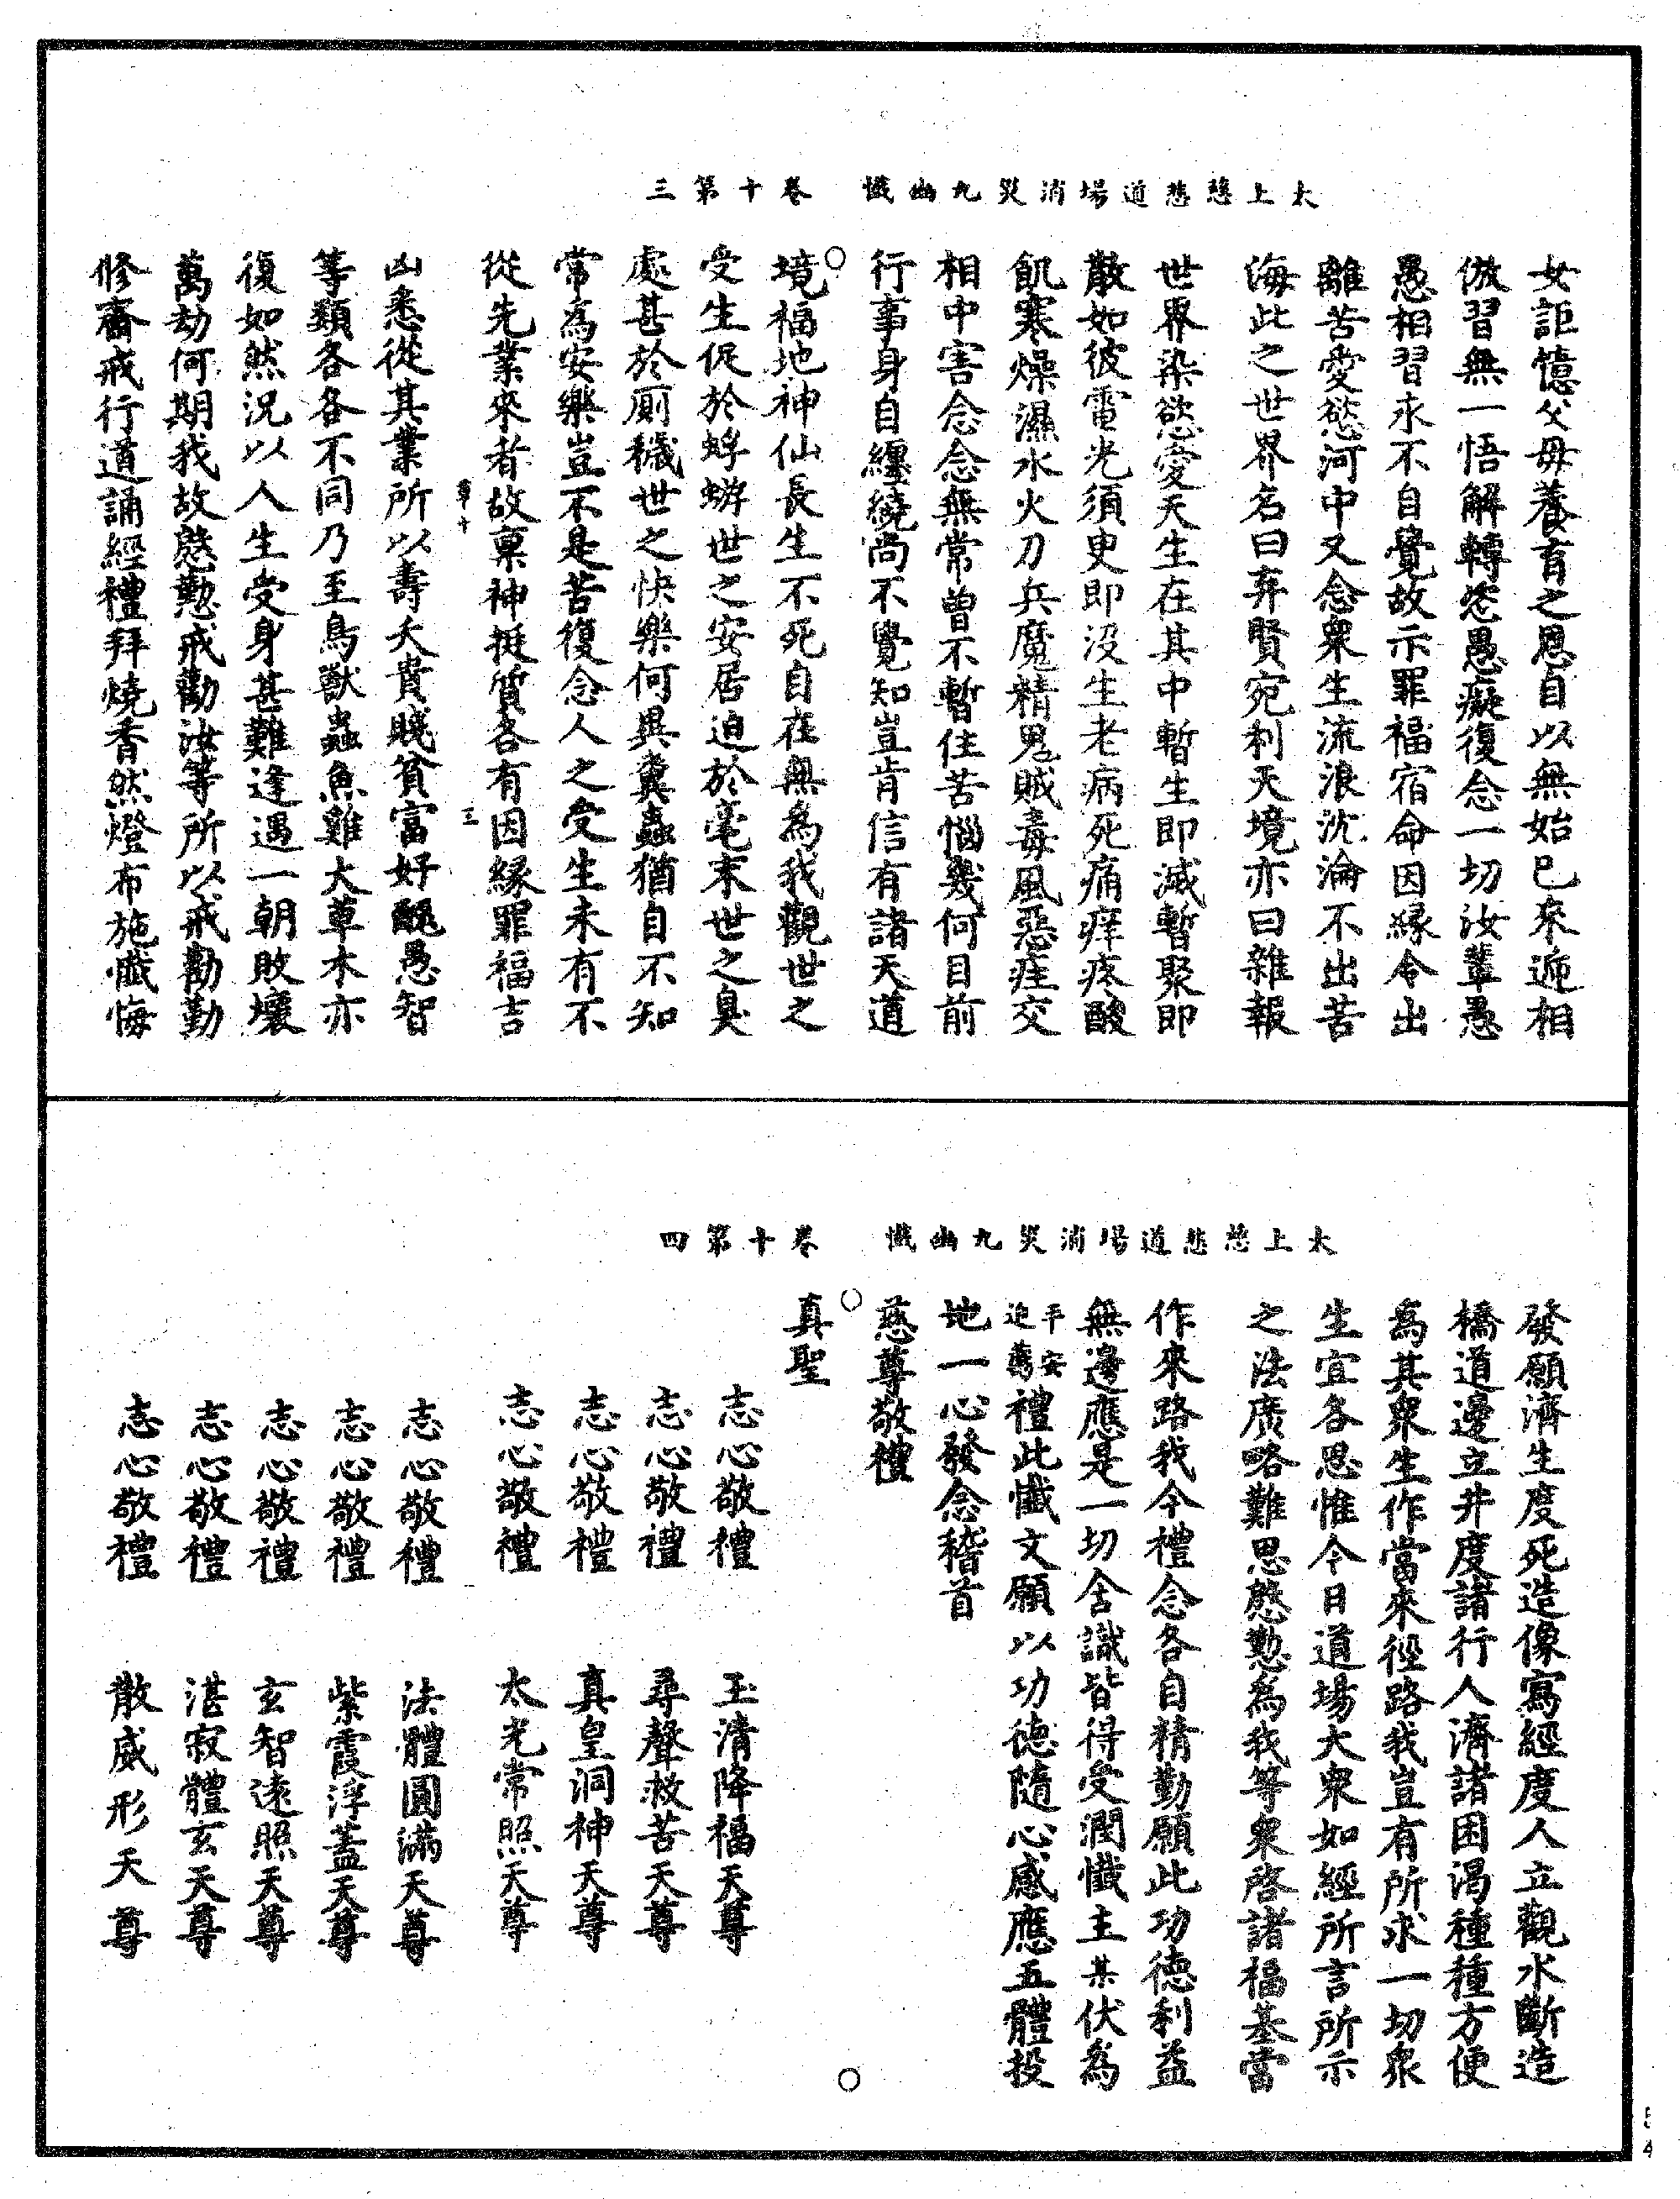 太上慈悲道場消災九幽懺　卷十第三
女詎憶父母養育之恩自以無始已來遞相
倣習無一悟解轉恣愚癡復念一切汝輩愚
愚相習永不自覺故示罪福宿命因緣令出
離苦愛慾河中又念衆生流浪沈淪不出苦
海此之世界名曰弃賢宛利天境亦曰雜報
世界染慾愛天生在其中暫生即滅暫聚即
散如彼電光須臾即沒生老病死痛痒疼酸
飢寒燥濕水火刀兵魔精鬼賊毒風惡疰交
相中害念念無常曾不暫住苦惱幾何目前
行事身自纏繞尚不覺知豈肯信有諸天道
境福地神仙長生不死自在無為我觀世之
受生促於蜉蝣世之安居迫於毫末世之臭
處甚於厠穢世之快樂何異糞蟲猶自不知
常為安樂豈不是苦復念人之受生未有不
從先業來者故稟神挺質各有因緣罪福吉
章十　三
凶悉從其業所以壽夭貴賤貧富好醜愚智
等類各各不同乃至鳥獸蟲魚雞犬草木亦
復如然況以人生受身甚難逢遇一朝敗壞
萬劫何期我故慇懃戒勸汝等所以戒勸勤
修齋戒行道誦經禮拜燒香然燈布施懺悔
太上慈悲道場消災九幽懺　卷十第四
發願濟生度死造像寫經度人立觀水斷造
橋道邊立井度諸行人濟諸困渴種種方便
為其衆生作當來徑路我豈有所求一切衆
生宜各思惟今日道場大衆如經所言所示
之法廣略難思慇懃為我等衆啓諸福基當
作來路我今禮念各自精勤願此功德利益
無邊應是一切含識皆得受潤懺主某伏為
平安
迎薦禮此懺文願以功德隨心感應五體投
地一心發念稽首
慈尊敬禮
真聖
志心敬禮　玉清降福天尊
志心敬禮　尋聲救苦天尊
志心敬禮　真皇洞神天尊
志心敬禮　太光常照天尊
志心敬禮　法體圓滿天尊
志心敬禮　紫霞浮蓋天尊
志心敬禮　玄智遠照天尊
志心敬禮　湛寂體玄天尊
志心敬禮　散威形天尊
54